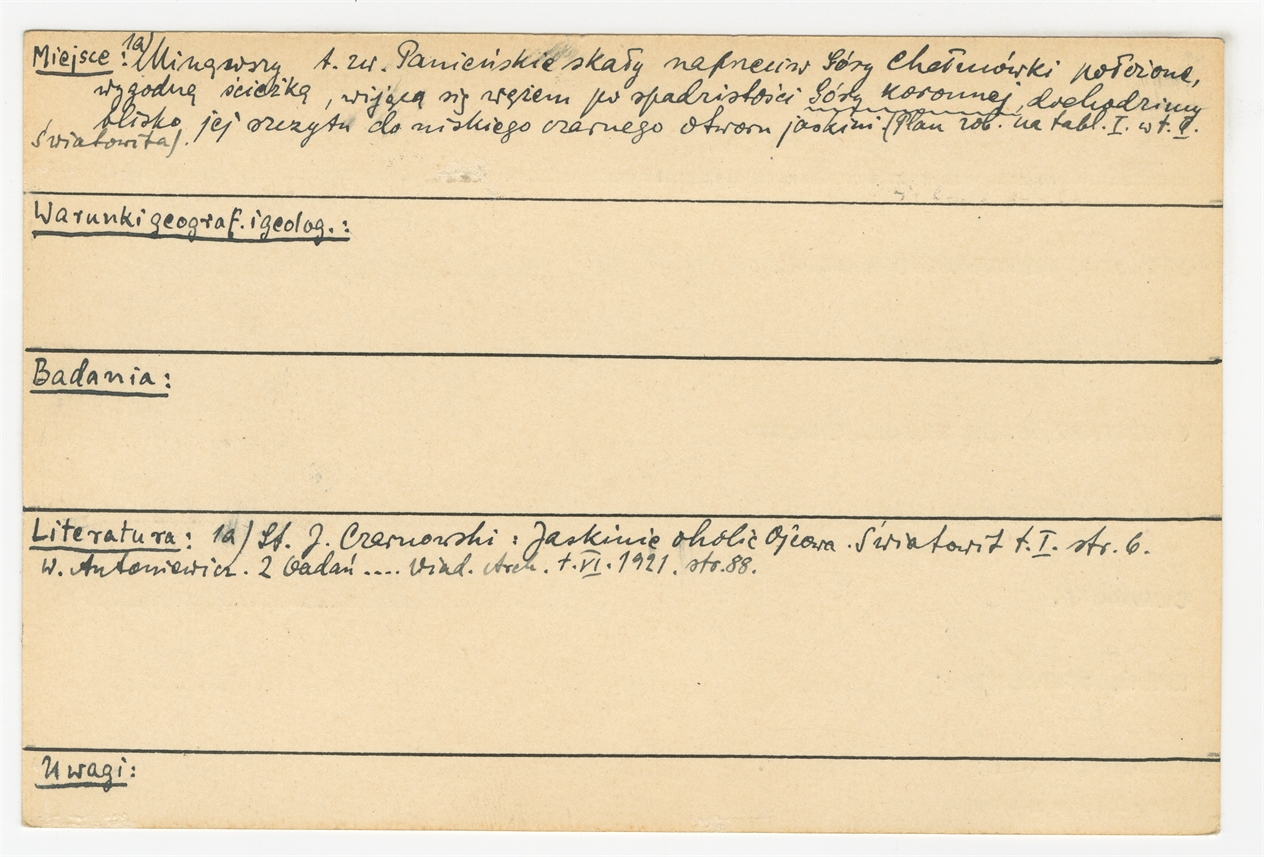 Miejsce: 1a) Minąwszy t. zw. Panieńskie skały naprzeciw Góry Chełmówki położone,
wygodną ścieżką, wijącą się wężem po spadzistości Góry Koronnej, dochodzimy
blisko jej szczytu do niskiego czarnego otworu jaskini. (Plan rob. na tabl. I. w t. I.
Światowita).
Warunki geograf. i geolog.:
Badania:
Literatura: 1a) St. J. Czarnowski: Jaskinie okolic Ojcowa. Światowit t. I. str. 6.
W. Antoniewicz. Z badań .... Wiad. Arch. t. VI. 1921. str. 88.
Uwagi: